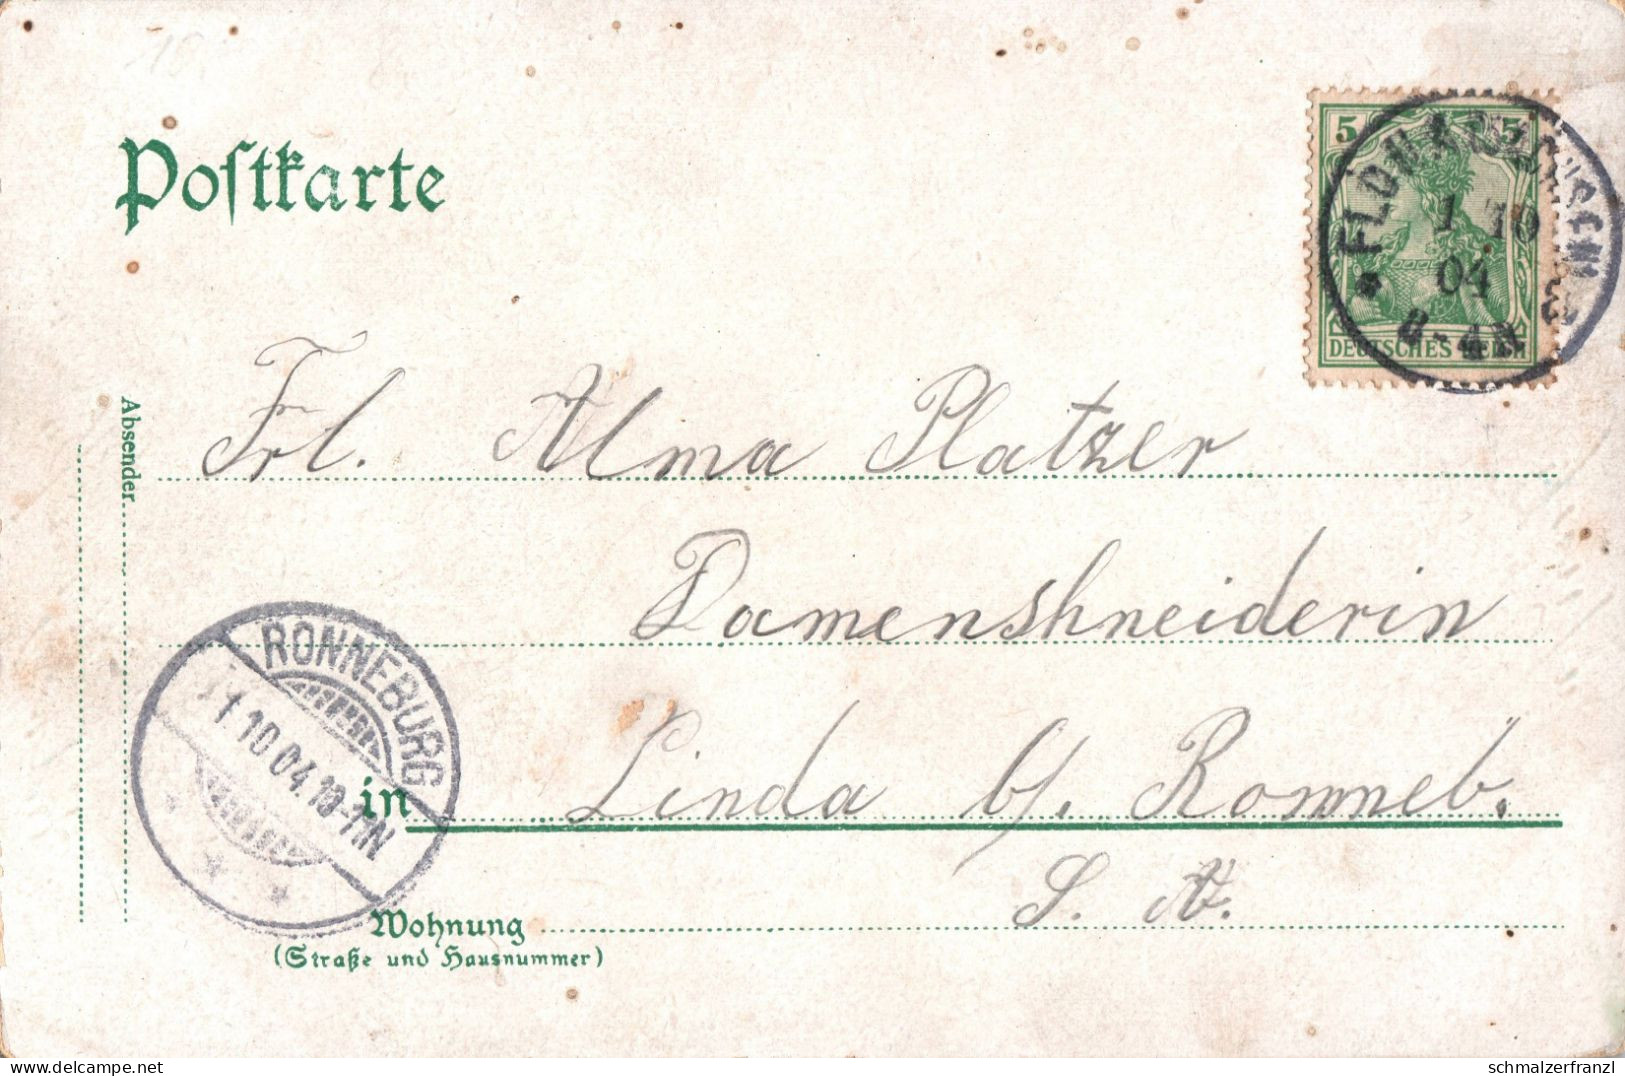 Postkarte
5 5
DEUTSCHES REICH
1 10
04
Absender
Frl. Alma Platzer
Damenshneiderin
RONNEBURG
1.10.04.10-11N
in Linda b/. Ronneb.
S. A.
Wohnung
(Straße und Hausnummer)
www.delcampe.net
schmalzerfranzl